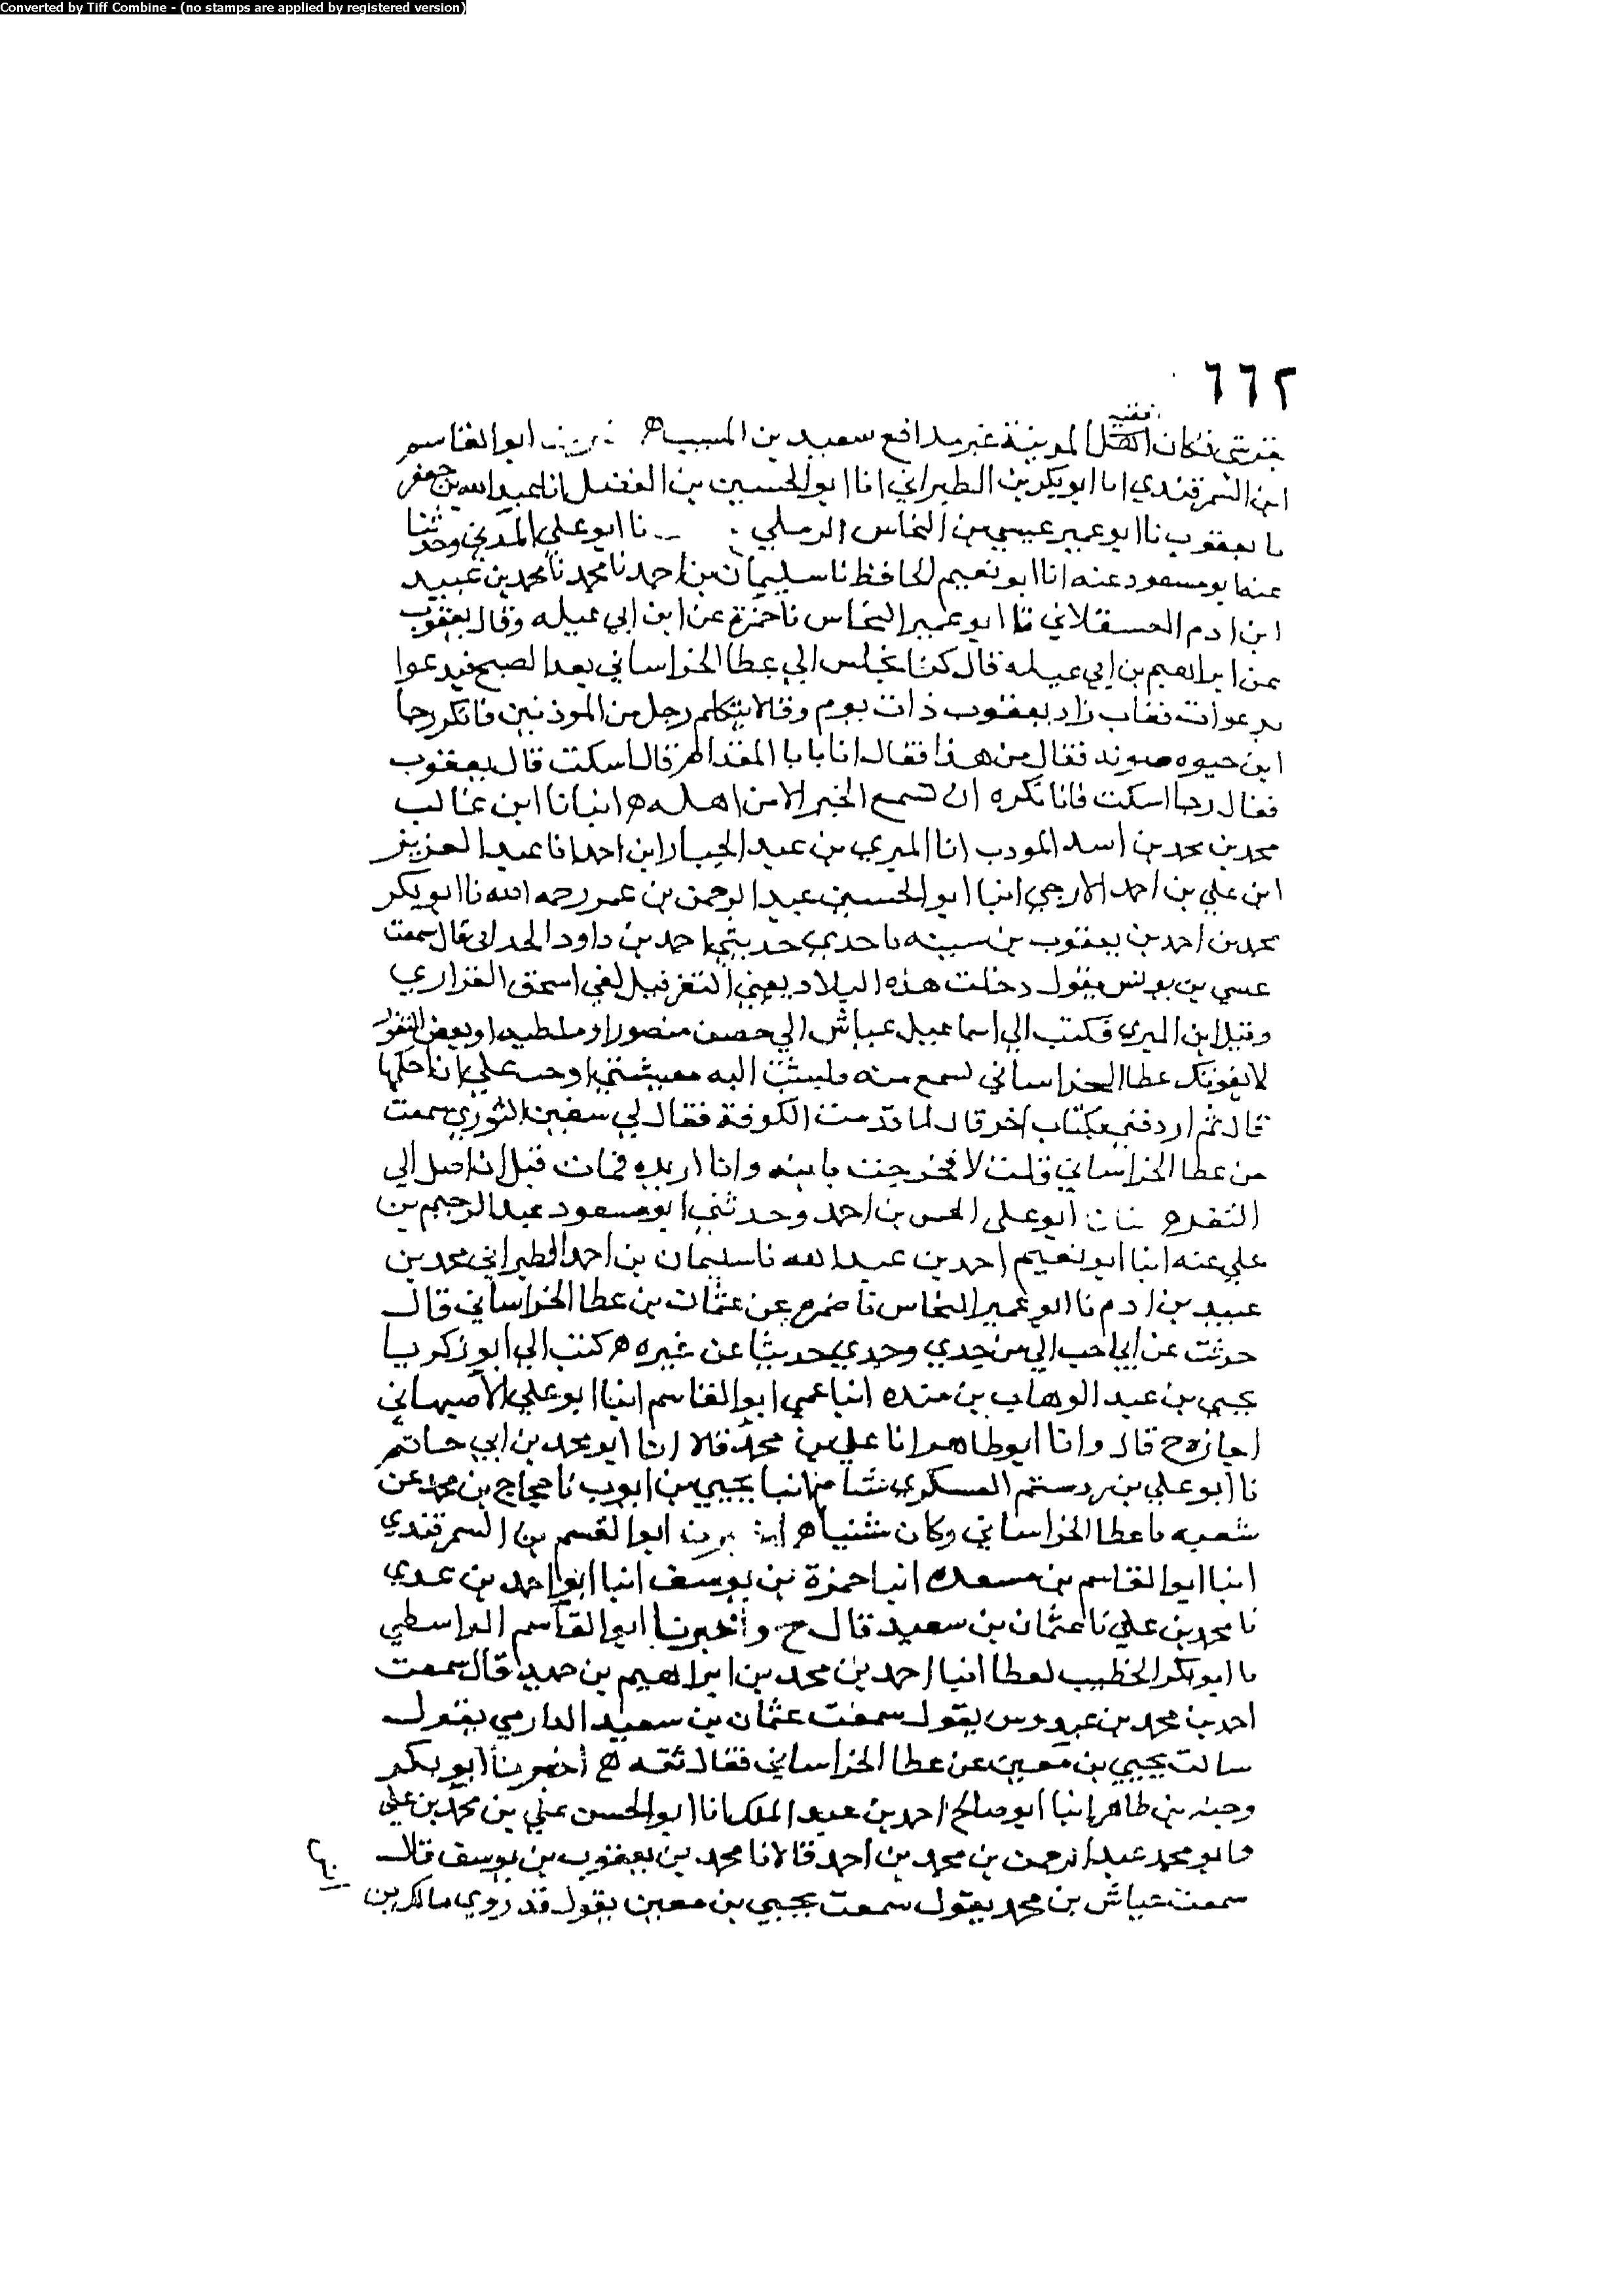 Converted by Tiff Combine - (no stamps are applied by registered version)
٦٦٢
فقيه
قرشي فكان اهل المدينة غير مدافع سعيد بن المسيب ه ابوالقاسم
ابن السمرقندي انا ابو بكر بن الطبراني انا ابوالحسين بن الفضل انا عبد الله بن جعفر
نا يعقوب نا ابو عمير عيسي بن النحاس الرملي نا ابو علي المدني وحدثنا
عنه ابو مسعود عنه انا ابو نعيم الحافظ نا سليمان بن احمد نا محمد نا محمد بن عبيد
ابن ادم العسقلاني نا ابو عمير النحاس نا ضمرة عن ابن ابي عبيله وقال يعقوب
عن ابراهيم بن ابي عبيله قال كنا نجلس الي عطا الخراساني بعد الصبح فيدعوا
بدعوات فغاب زاد يعقوب ذات يوم وقالا يتكلم رجل من الموذنين فانكر رجا
ابن حيوه صوته فقال من هذا فقال انا يا با المقدام قال اسكت قال يعقوب
فقال رجا اسكت فانا نكره ان نسمع الخبر الا من اهله ه انبانا ابن غالب
محمد بن محمد بن اسد المودب انا المبري بن عبد الجبار ابن احمد انا عبد العزيز
ابن علي بن احمد الازجي انبا ابو الحسين عبد الرحمن بن عمر رحمه الله نا ابو بكر
محمد بن احمد بن يعقوب بن سيبه نا جدي حدثني احمد بن داود الحداني قال سمعت
عيسي بن يونس يقول دخلت هذه البلاد يعني الثغر قبل لقي اسحق الفزاري
وقبل ابن المبري فكتب الي اسماعيل عياش الي حصن منصور او ملطيه او بعض الثغور
لا يفوتك عطا الخراساني تسمع منه
قال ثم اردفني بكتاب اخر قال لما قدمت الكوفة فقال لي سفين الثوري سمعت
من عطا الخراساني قلت لا فخرجت وانا اريده فمات قبل ان اصل الي
الثغر ح ابو علي الحسن بن احمد وحدثني ابو مسعود عبد الرحيم بن
علي عنه انبا ابو نعيم احمد بن عبد الله نا سليمان بن احمد الطبراني محمد بن
عبيد بن ادم نا ابو عمير النحاس نا ضمره عن عثمان بن عطا الخراساني قال
حدثت عن ابي احب الي من جدي وجدي حديثا عن غيره ه كتب الي ابو زكريا
يحيي بن عبد الوهاب بن منده انبا عمي ابو القاسم انبا ابو علي الاصبهاني
اجازه ح قال وانا ابو طاهر انا علي بن محمد قالا انا ابو محمد بن ابي حاتم
نا ابو علي بن رستم العسكري انبا يحيي بن ايوب نا حجاج بن محمد عن
شعبه نا عطا الخراساني وكان ه ابو القسم بن السمرقندي
انبا ابوالقاسم بن مسعده انبا حمزة بن يوسف انبا ابو احمد بن عدي
نا محمد بن علي نا عثمان بن سعيد قال ح واخبرنا ابو القاسم الواسطي
نا ابو بكر الخطيب لعطا انبا احمد بن محمد بن ابراهيم بن حميد قال سمعت
احمد بن محمد بن عبدوس يقول سمعت عثمان بن سعيد الدارمي يقول
سالت يحيي بن معين عن عطا الخراساني فقال ثقه ه اخبرنا ابو بكر
وجيه بن طاهر انبا ابو صالح احمد بن عبد الملك انا ابو الحسن علي بن محمد بن علي
وابو محمد عبد الرحمن بن محمد بن احمد قالا نا محمد بن يعقوب بن يوسف قال
سمعت عياش بن محمد يقول سمعت يحيي بن معين يقول قد روي مالك بن